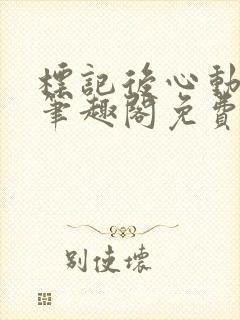 標記後心動
筆趣閣免費
別使壞